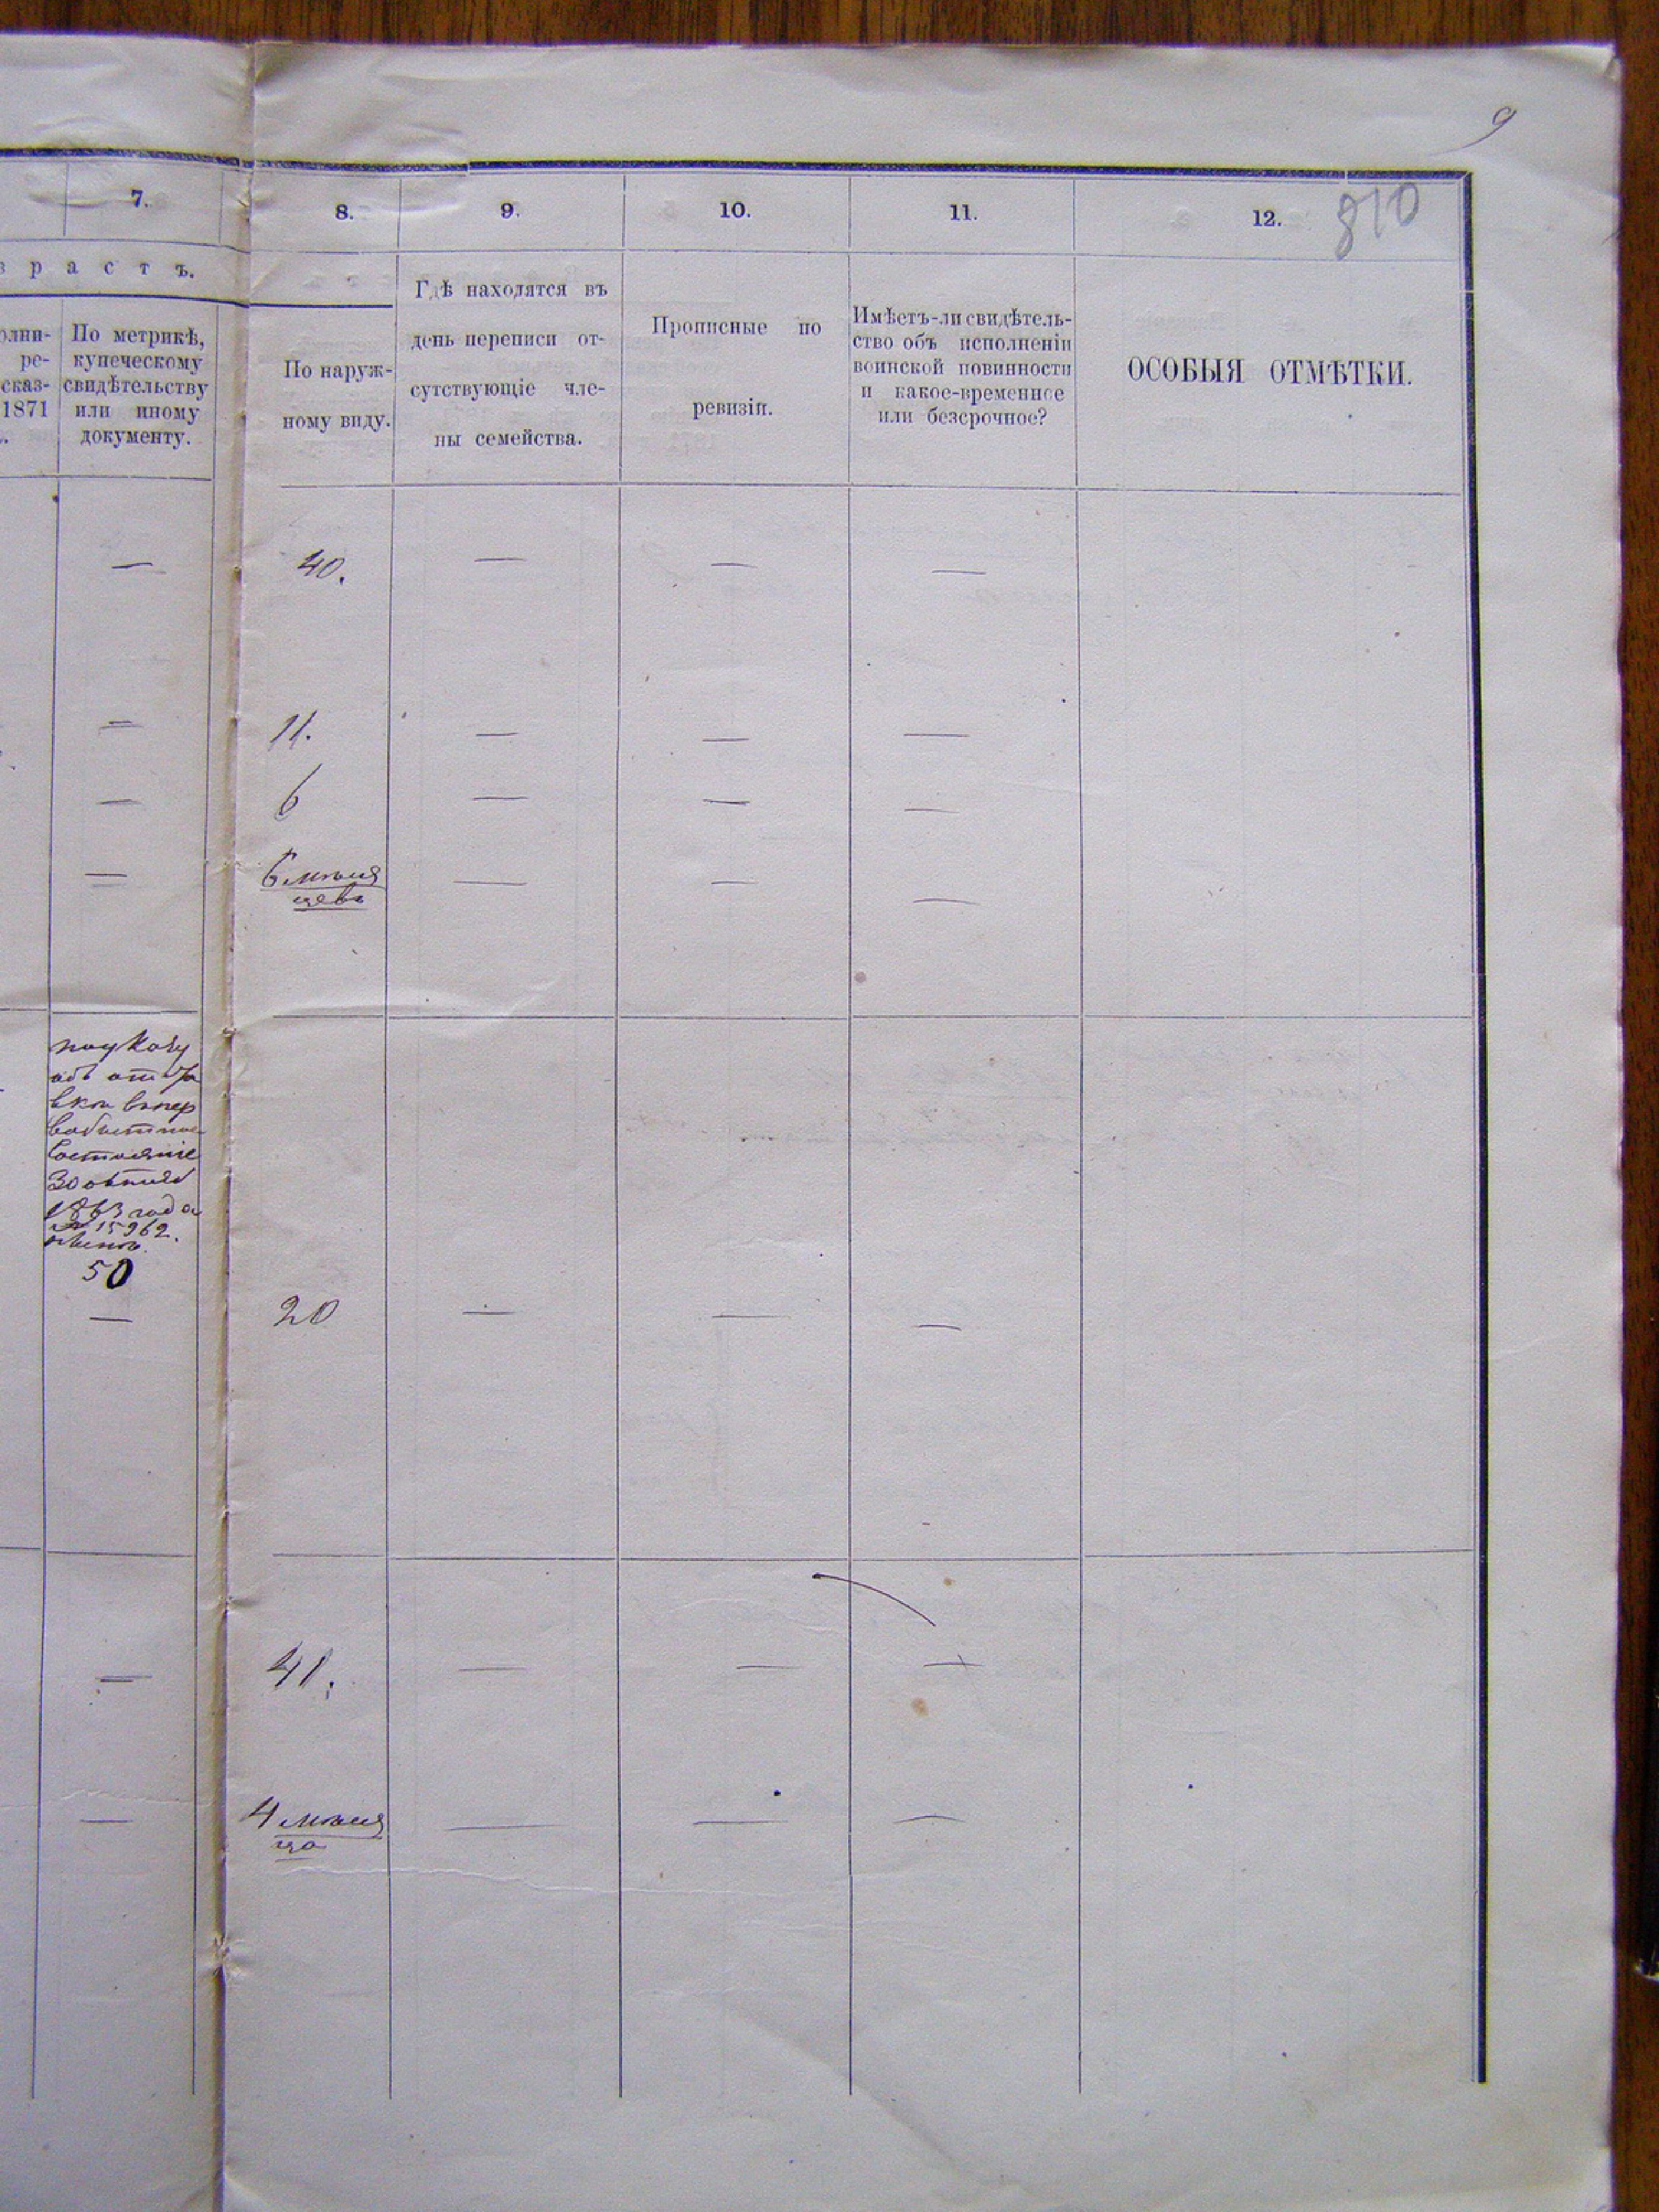 9
810
7. 8. 9. 10. 11. 12.
растъ.
олни-
ре-
сказ-
1871
По метрикѣ,
купеческому
свидѣтельству
или иному
документу.
По наруж-
ному виду.
Гдѣ находятся въ
день переписи от-
сутствующіе чле-
ны семейства.
Прописные по
ревизіи.
Имѣетъ-ли свидѣтель-
ство объ исполненіи
воинской повинности
и какое-временное
или безсрочное?
ОСОБЫЯ ОТМѢТКИ.
— 40. — — —
— 11. — — —
— 6 — — —
— 6 мѣся
цевъ — — —
по указу
объ
состояніе
30
1863 года
№ 15962.
50
— 20 — — —
— 41. — — —
— 4 мѣся
ца — — —